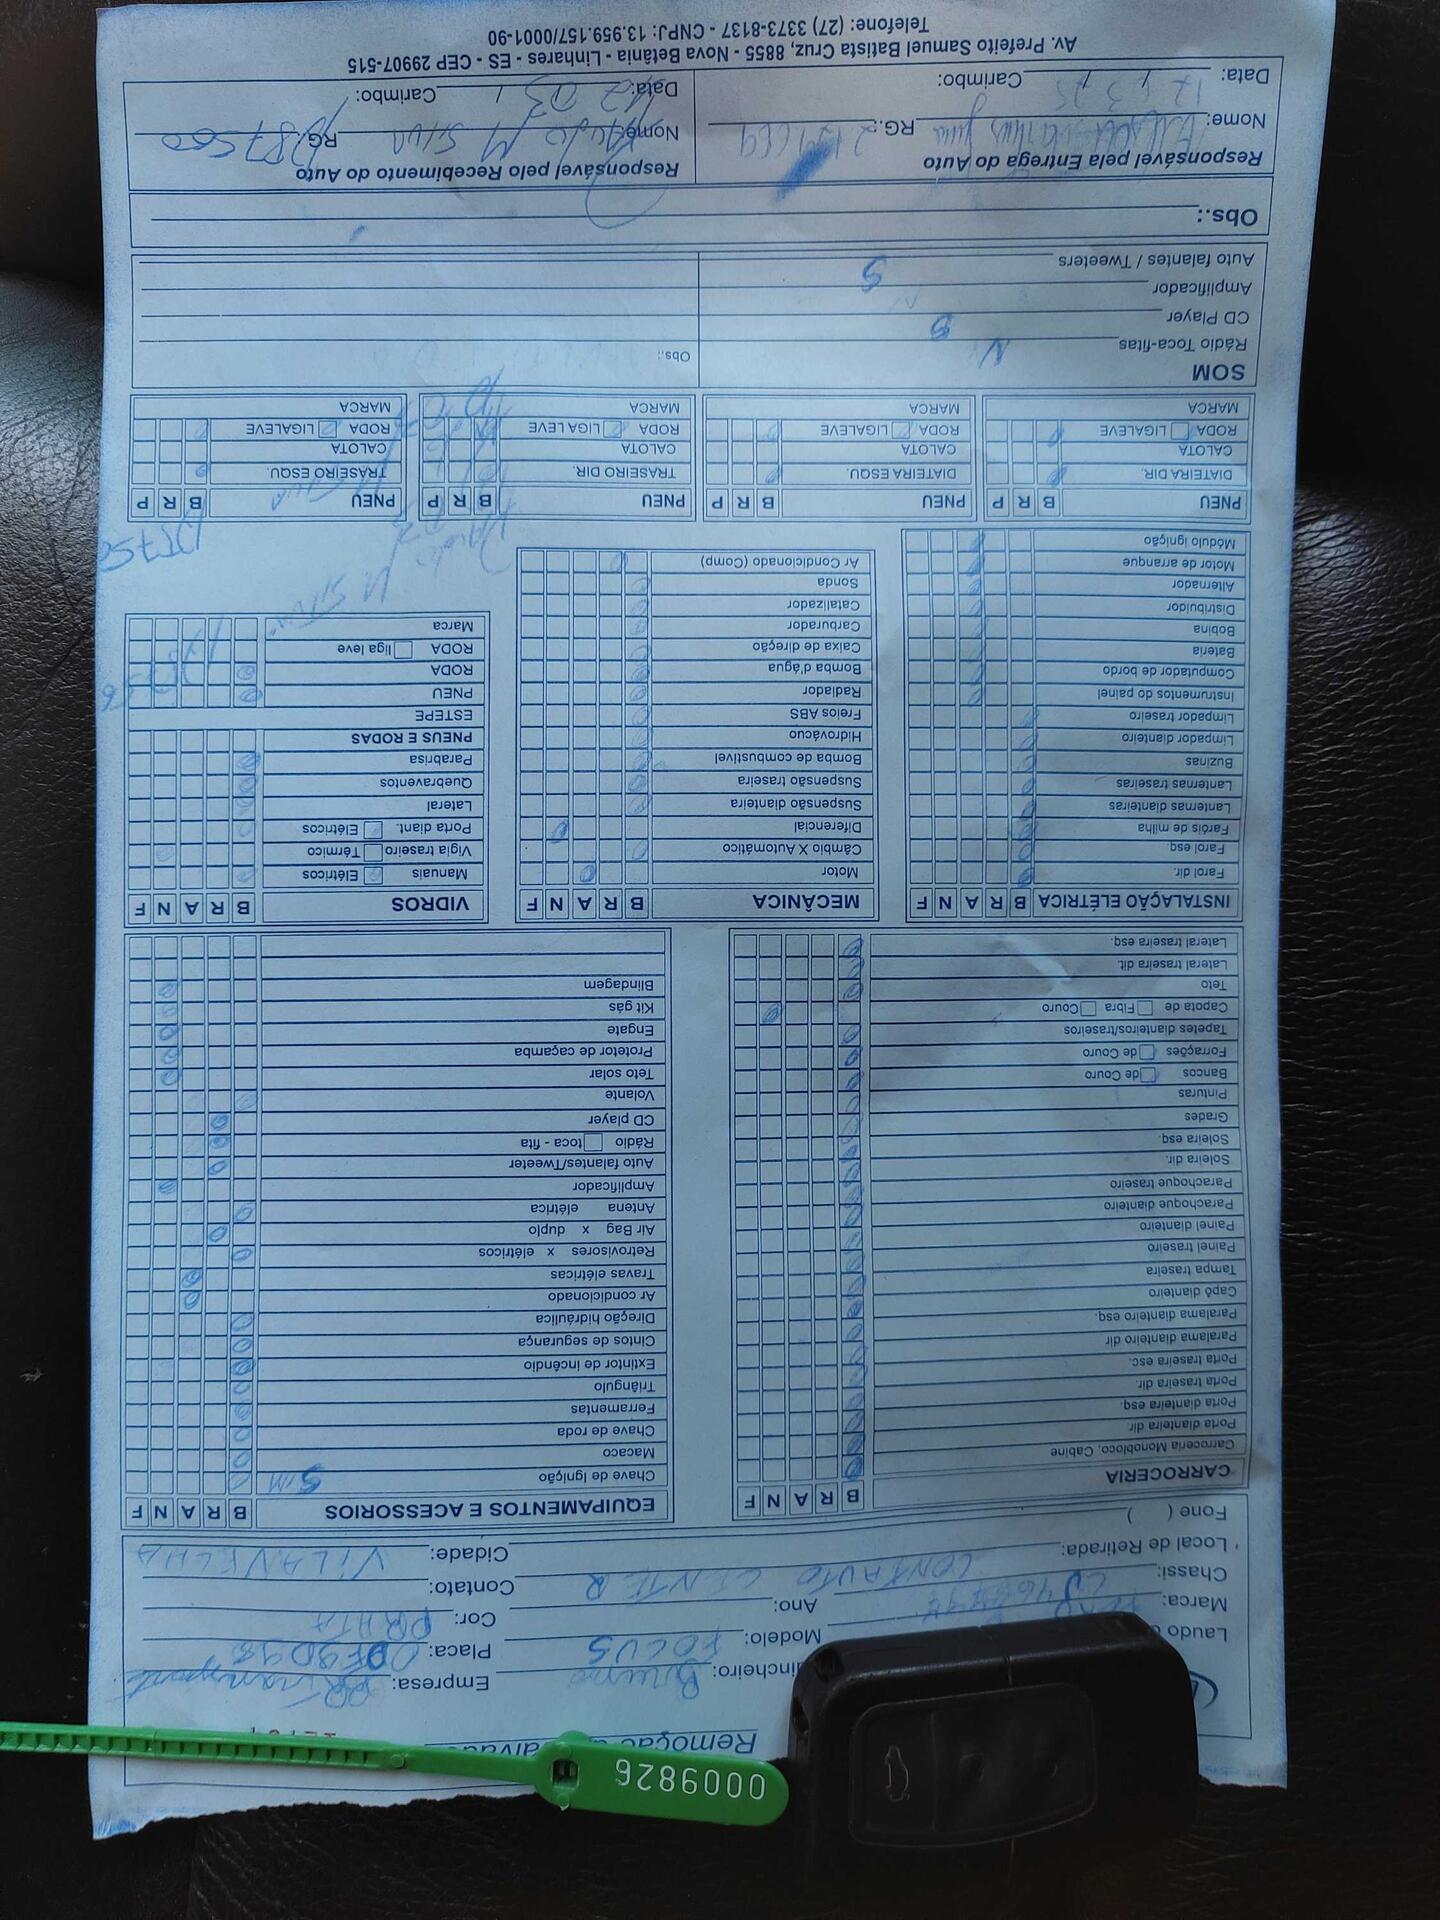 Remoção
Empresa:
Modelo: FOCUS Placa:
Marca: Ano: Cor: PRATA
Chassi: Contato:
Local de Retirada: CONTAUTO CENTER Cidade: VILA VELHA
Fone ( )
CARROCERIA B R A N F
Carroceria Monobloco, Cabine
Porta dianteira dir.
Porta dianteira esq.
Porta traseira dir.
Porta traseira esc.
Paralama dianteiro dir
Paralama dianteiro esq.
Capô dianteiro
Tampa traseira
Painel traseiro
Painel dianteiro
Parachoque dianteiro
Parachoque traseiro
Soleira dir.
Soleira esq.
Grades
Pinturas
Bancos de Couro
Forrações de Couro
Tapetes dianteiros/traseiros
Capota de Fibra Couro
Teto
Lateral traseira dit.
Lateral traseira esq.
EQUIPAMENTOS E ACESSORIOS B R A N F
Chave de Ignição SIM
Macaco
Chave de roda
Ferramentas
Triângulo
Extintor de incêndio
Cintos de segurança
Direção hidráulica
Ar condicionado
Travas elétricas
Retrovisores x elétricos
Air Bag x duplo
Antena elétrica
Amplificador
Auto falantes/Tweeter
Rádio toca - fita
CD player
Volante
Teto solar
Protetor de caçamba
Engate
Kit gás
Blindagem
INSTALAÇÃO ELÉTRICA B R A N F
Farol dir.
Farol esq.
Faróis de milha
Lanternas dianteiras
Lanternas traseiras
Buzinas
Limpador dianteiro
Limpador traseiro
Instrumentos do painel
Computador de bordo
Bateria
Bobina
Distribuidor
Alternador
Motor de arranque
Módulo ignição
MECÂNICA B R A N F
Motor
Câmbio X Automático
Diferencial
Suspensão dianteira
Suspensão traseira
Bomba de combustível
Hidrovácuo
Freios ABS
Radiador
Bomba d'água
Caixa de direção
Carburador
Catalizador
Sonda
Ar Condicionado (Comp)
VIDROS B R A N F
Manuais Elétricos
Vigia traseiro Térmico
Porta diant. Elétricos
Lateral
Quebraventos
Parabrisa
PNEUS E RODAS
ESTEPE
PNEU
RODA
RODA liga leve
Marca
PNEU B R P
DIATEIRA DIR.
CALOTA
RODA LIGALEVE
MARCA
PNEU B R P
DIATEIRA ESQU.
CALOTA
RODA LIGALEVE
MARCA
PNEU B R P
TRASEIRO DIR.
CALOTA
RODA LIGA LEVE
MARCA
PNEU B R P
TRASEIRO ESQU.
CALOTA
RODA LIGALEVE
MARCA
SOM
Rádio Toca-fitas N
CD Player S
Amplificador N
Auto falantes / Tweeters S
Obs.:
Obs.:
Responsável pela Entrega do Auto
Nome: RG.:
Data: Carimbo:
Responsável pelo Recebimento do Auto
Nome: M SILVA RG:
Data: Carimbo:
Av. Prefeito Samuel Batista Cruz, 8855 - Nova Betânia - Linhares - ES - CEP 29907-515
Telefone: (27) 3373-8137 - CNPJ: 13.959.157/0001-90
0009826